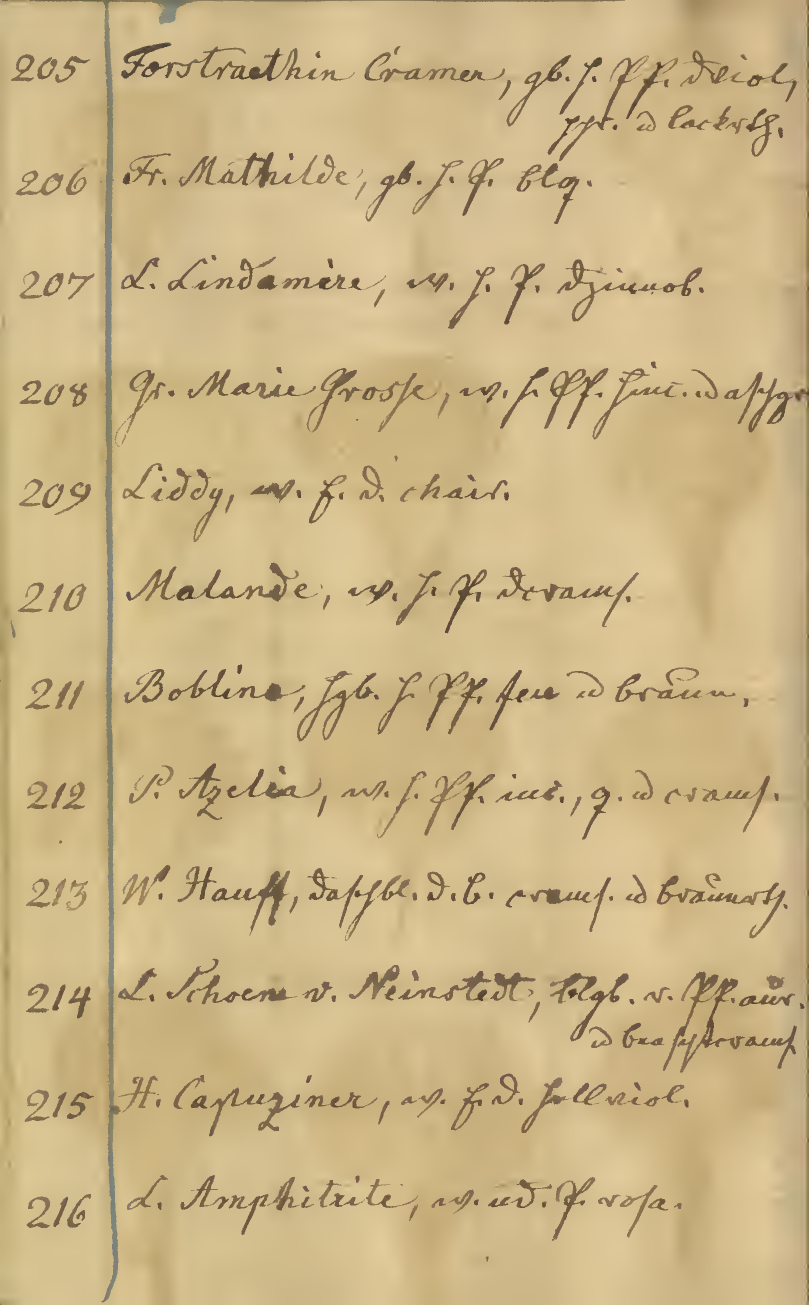 205 Forstraethin Cramer, gb. f. Pf. dviol,
ppr. u lackrth.
206 Fr. Mathilde, gb. f. P. blq.
207 L. Lindamire, w. f. P. dzinnob.
208 Gr. Marie Grosse, w. f. Pf. u aschgr
209 Liddy, w. f. d. chair.
210 Malande, w. f. P. dcramf.
211 Bobline, hgb. f. Pf. feu u braun.
212 P. Azelia, w. f. Pf. inc., q. u cramf.
213 W. Hauff, daschbl. d. b. cramf. u braunrth.
214 L. Schoene v. Neinstedt, blgb. r. Pf. aur.
u cramf
215 H. Capuziner, w. f. d. hellviol.
216 L. Amphitrite, w. ud. P. rosa.